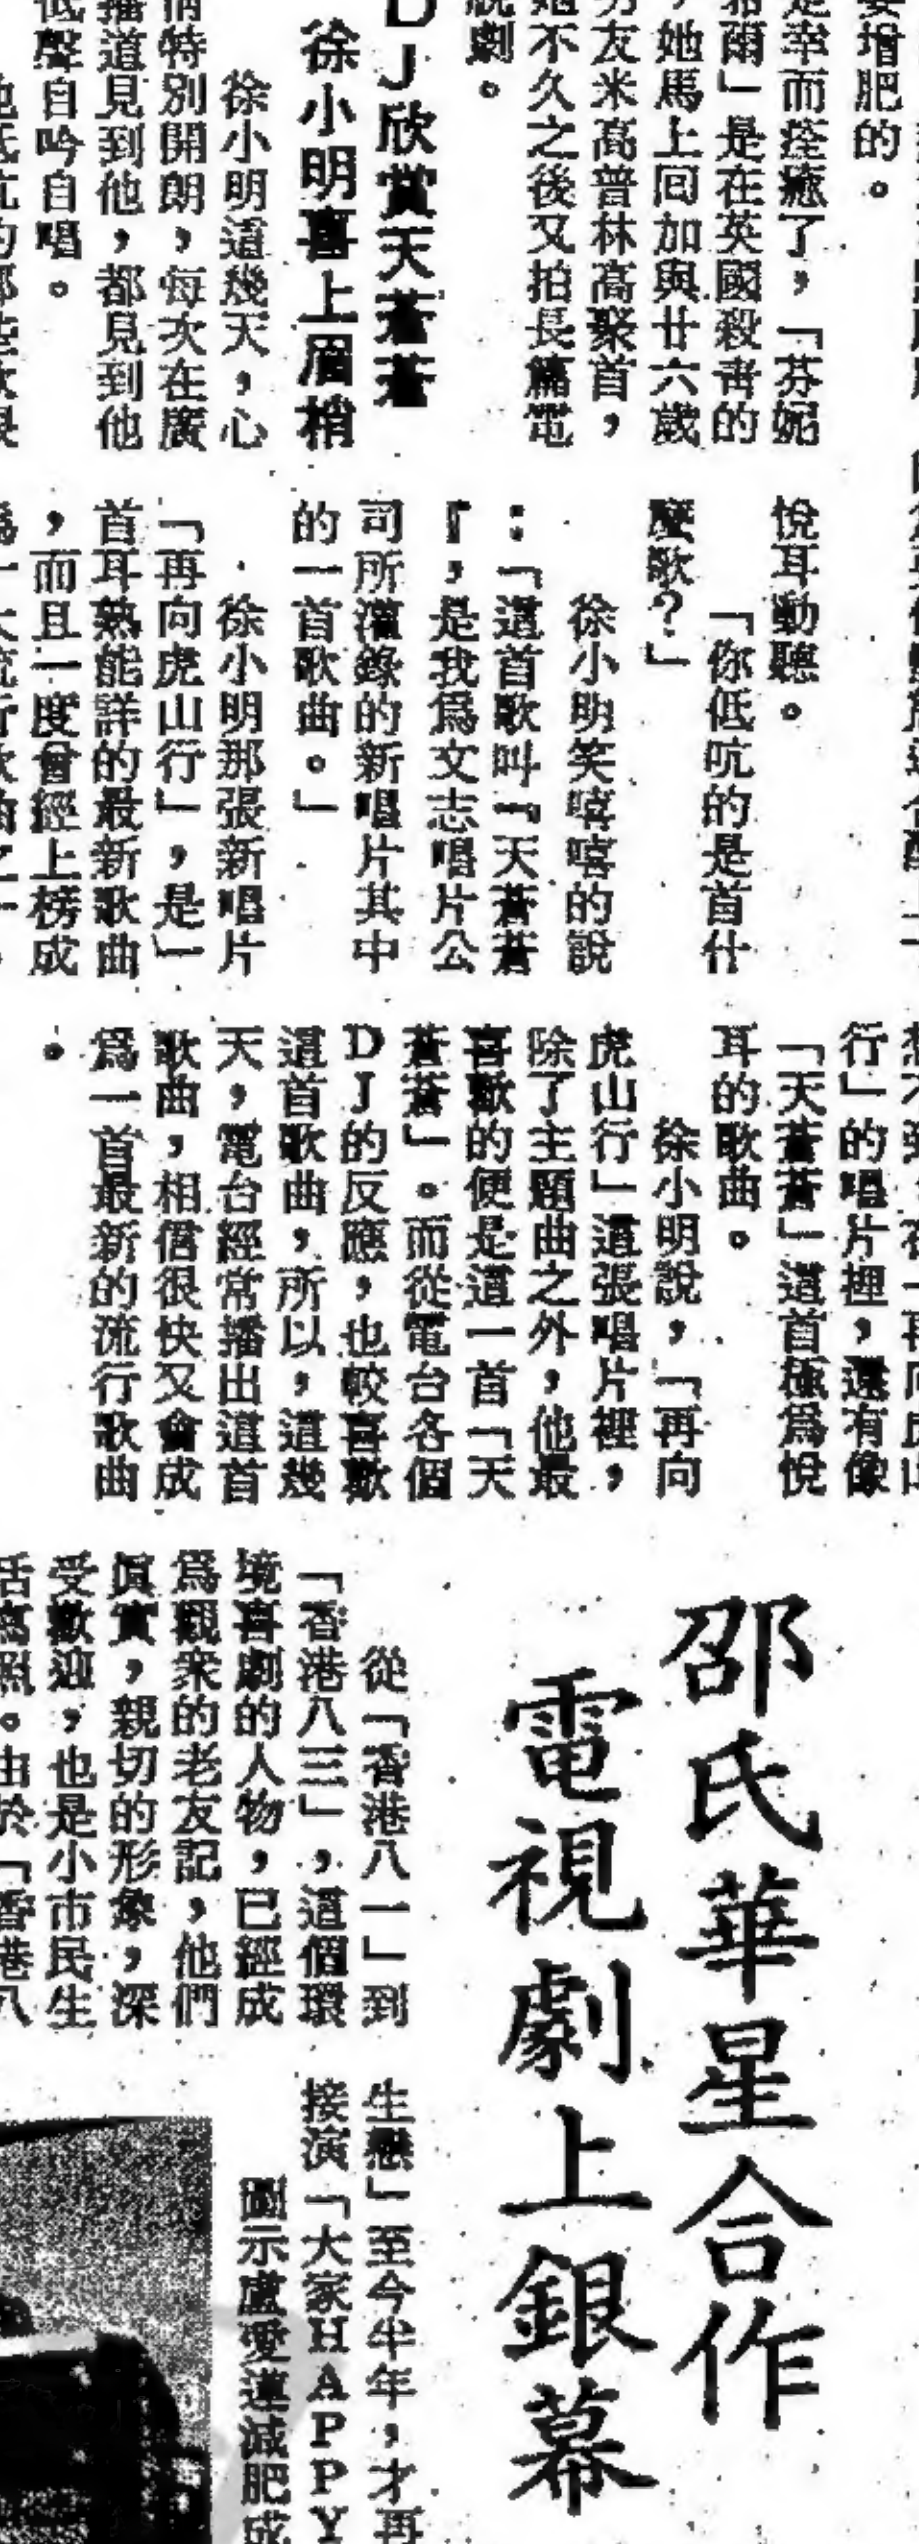 要增肥的。
是幸而痊癒了，「芬妮
希爾」是在英國殺青的
，她馬上回加與廿六歲
男友米高普林高聚首，
她不久之後又拍長篇電
視劇。
DJ欣賞天蒼蒼
徐小明喜上眉梢
徐小明這幾天，心
情特別開朗，每次在廣
播道見到他，都見到他
低聲自吟自唱。
悅耳動聽。
「你低吭的是首什
麼歌？」
徐小明笑嘻嘻的說
：「這首歌叫「天蒼蒼
「，是我爲文志唱片公
司所灌錄的新唱片其中
的一首歌曲。」
徐小明那張新唱片
「再向虎山行」，是一
首耳熟能詳的最新歌曲
，而且一度曾經上榜成
行」的唱片裡，還有像
「天蒼蒼」這首極爲悅
耳的歌曲。
徐小明說，「再向
虎山行」這張唱片裡，
除了主題曲之外，他最
喜歡的便是這一首「天
蒼蒼」。而從電台各個
DJ的反應，也較喜歡
這首歌曲，所以，這幾
天，電台經常播出這首
歌曲，相信很快又會成
爲一首最新的流行歌曲
。
邵氏華星合作
電視劇上銀幕
從「香港八一」到
「香港八三」，這個環
境喜劇的人物，已經成
爲觀衆的老友記，他們
眞實，親切的形象，深
受歡迎，也是小市民生
活寫照。由於「香港八
生戀」至今半年，才再
接演「大家HAPPY
圖示盧愛蓮減肥成